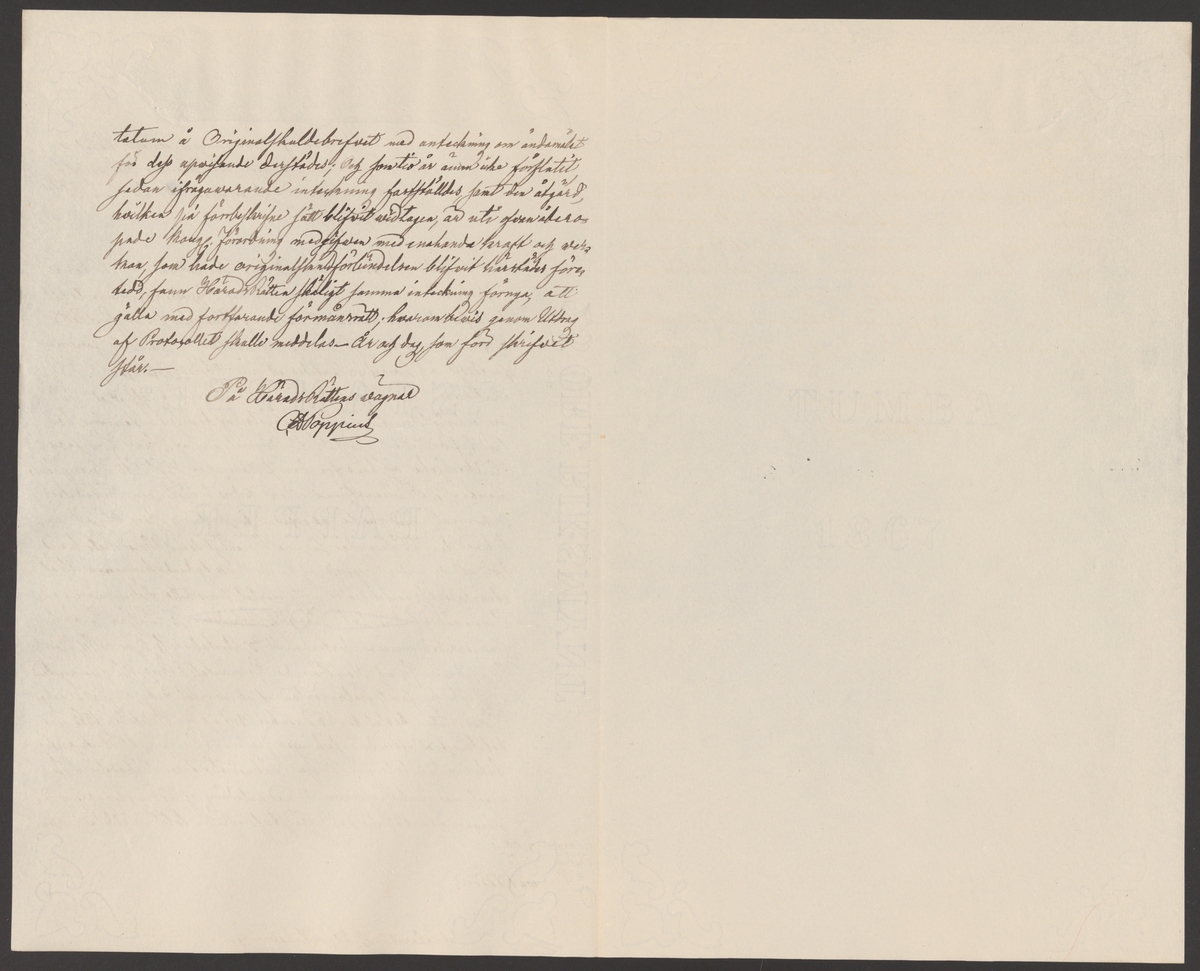 tatum å Originalskuldebrefvet med anteckning om ändamålet
för dess uppvisande derstädes; Och som tio år ännu icke förflutit
sedan ifrågavarande inteckning fastställdes samt den åtgärd,
hvilken på förrbeskrifne sätt blifvit vidtagen, är uti ofvan åbero-
pade Kongl. Förordning medgifven med enahanda kraft och ver-
kan, som hade originalskuldförbindelsen blifvit härstädes före-
tedd, fann HäradsRätten skäligt samma inteckning förnya, att
gälla med fortfarande förmånsrätt; hvarom bevis genom Utdrag
af Protocollet skulle meddelas. År och dag, som förd skrifvet
står.—
På HäradsRättens vägnar
Poppius
SMUT
1867